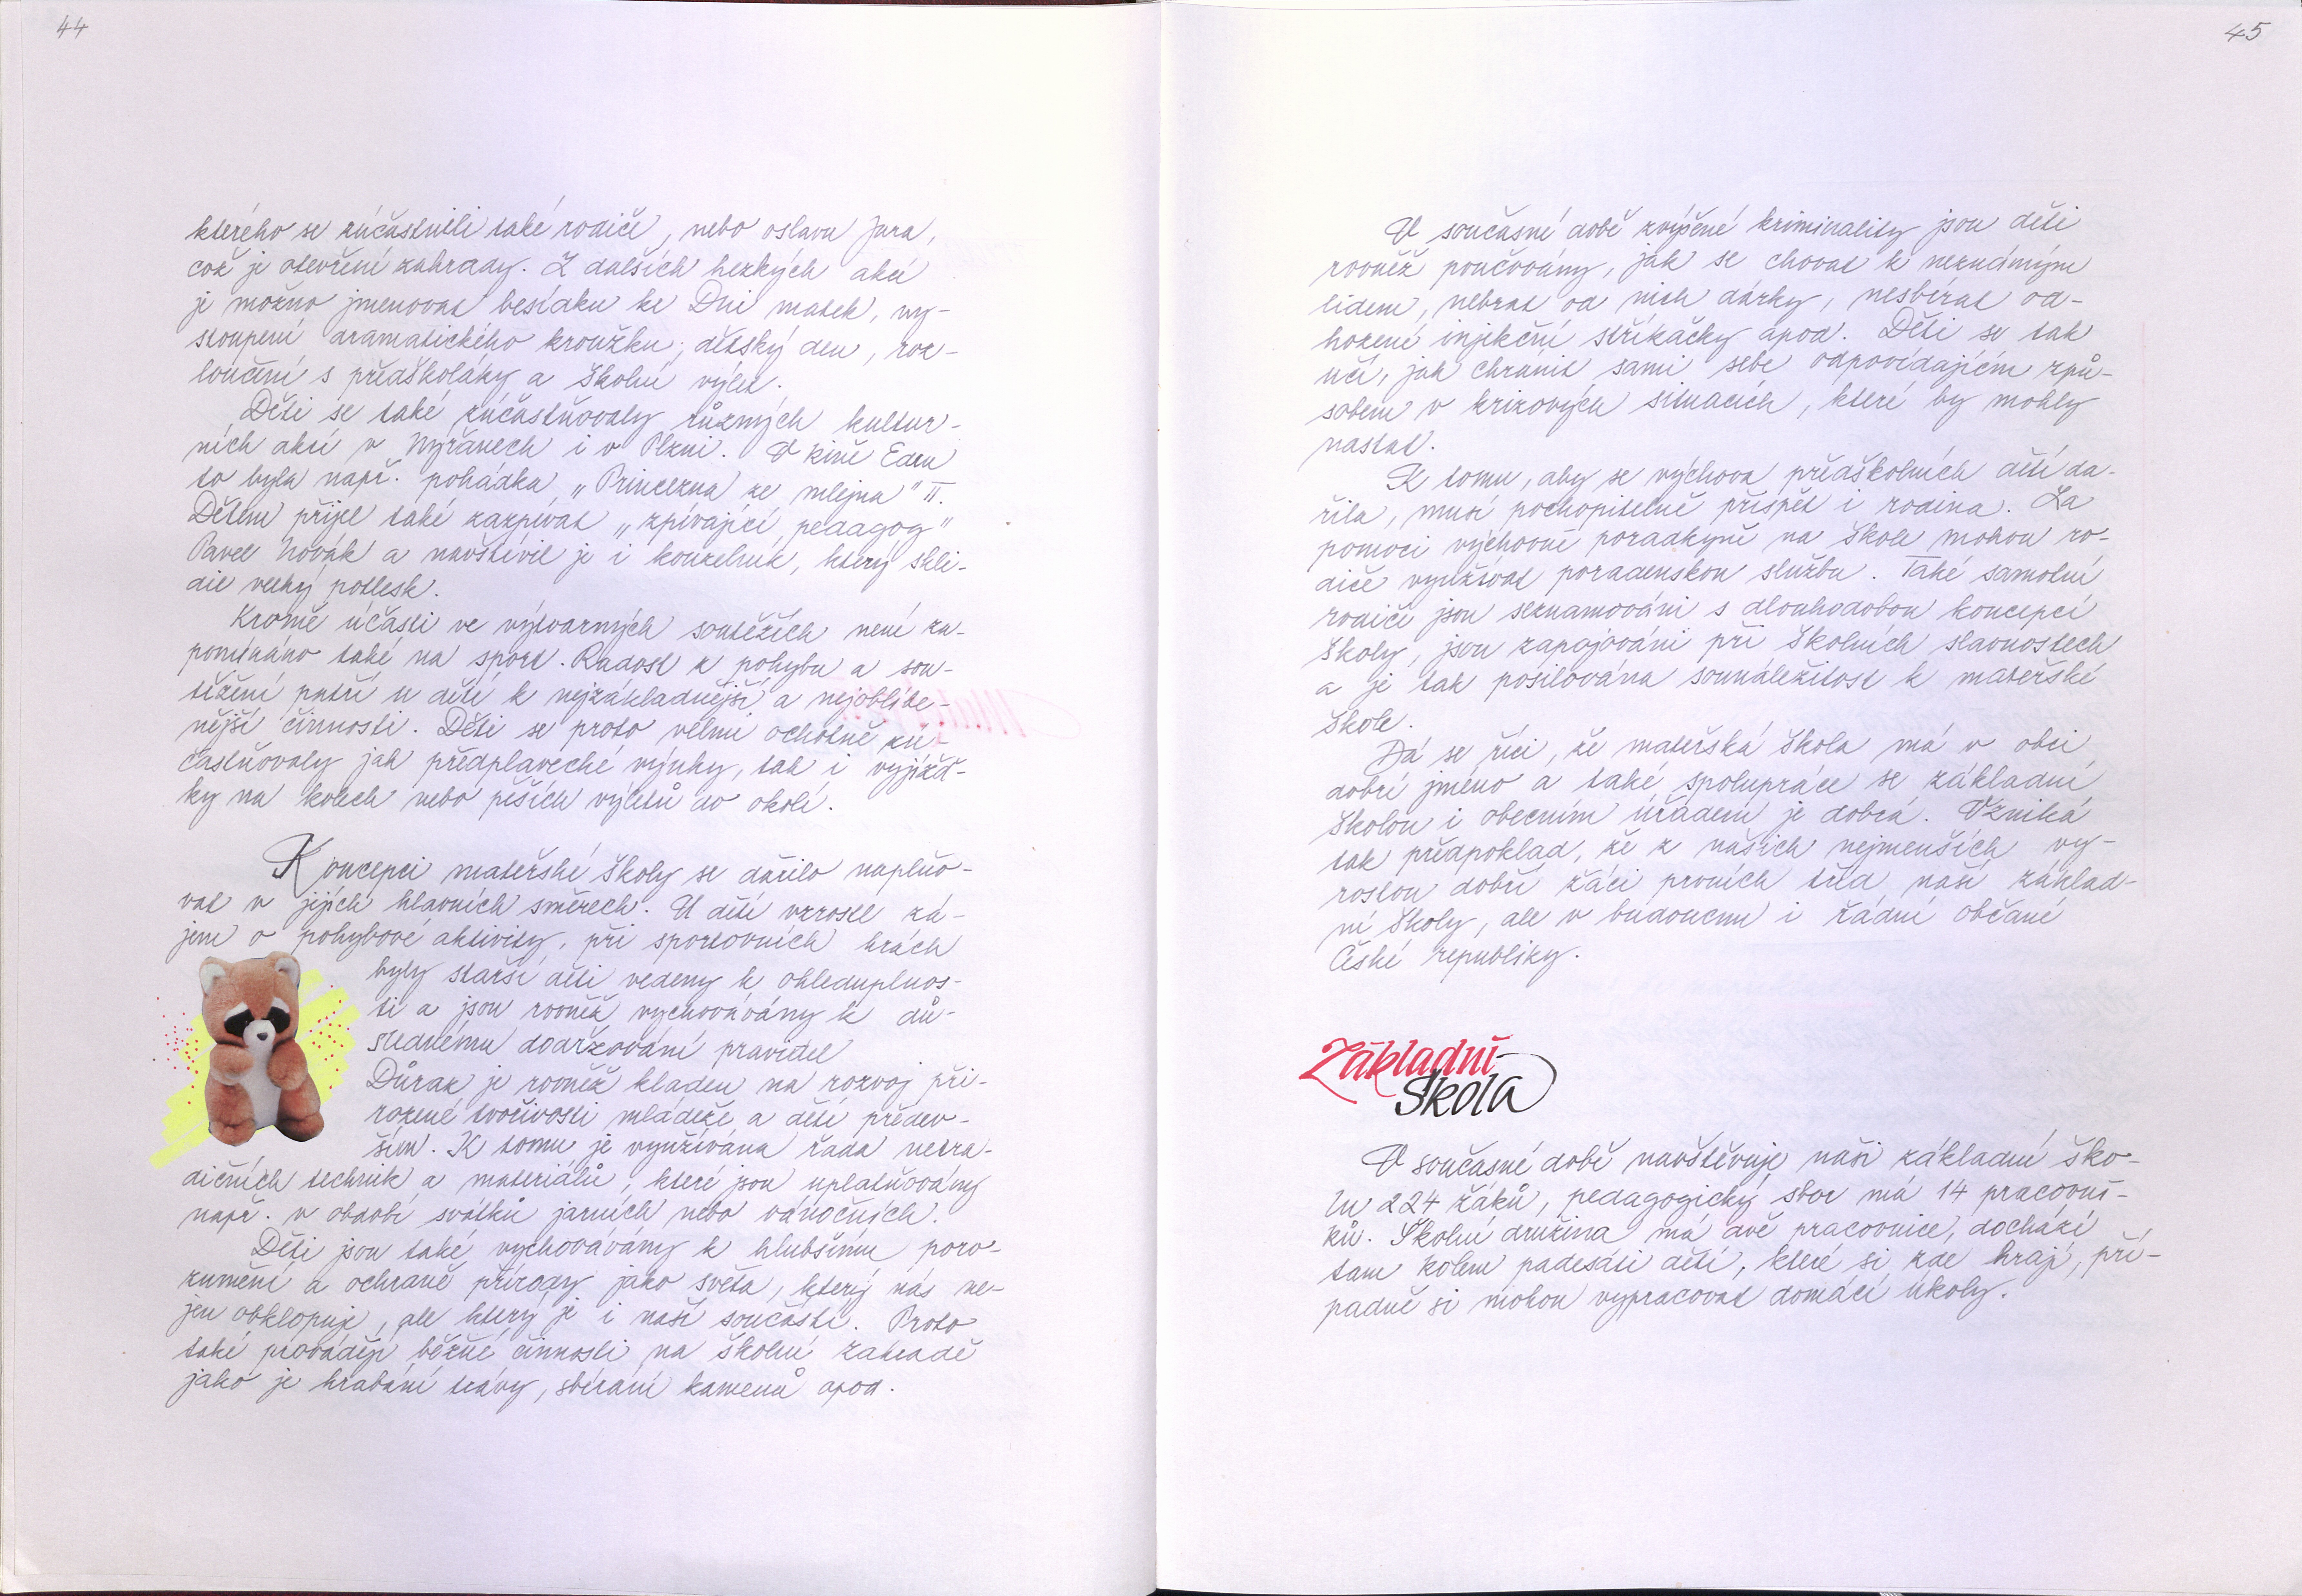 44
kterého se zúčastnili také rodiče, nebo oslava jara,
což je otevření zahrady. Z dalších hezkých akcí
je možno jmenovat besídku ke Dni matek, vy-
stoupení dramatického kroužku, dětský den, roz-
loučení s předškoláky a školní výlet.
Děti se také zúčastňovaly různých kultur-
ních akcí v Nýřanech i v Plzni. V kině Eden
to byla např. pohádka "Princezna ze mlejna" II.
Dětem přijel také zazpívat "zpívající pedagog"
Pavel Novák a navštívil je i kouzelník, který skli-
dil velký potlesk.
Kromě účasti ve výtvarných soutěžích není za-
pomínáno také na sport. Radost z pohybu a sou-
těžení patří u dětí k nejzákladnější a nejoblíbe-
nější činnosti. Děti se proto velmi ochotně zú-
častňovaly jak předplavecké výuky, tak i vyjížď-
ky na kolech nebo pěších výletů do okolí.
Koncepci mateřské školy se dařilo naplňo-
vat v jejích hlavních směrech. U dětí vzrostl zá-
jem o pohybové aktivity, při sportovních hrách
byly starší děti vedeny k ohleduplnos-
ti a jsou rovněž vychovávány k dů-
slednému dodržování pravidel
Důraz je rovněž kladen na rozvoj při-
rozené tvořivosti mládeže a dětí předev-
ším. K tomu je využívána řada netra-
dičních technik a materiálů, které jsou uplatňovány
např. v období svátků jarních nebo vánočních.
Děti jsou také vychovávány k hlubšímu poro-
zumění a ochraně přírody jako světa, který nás ne-
jen obklopuje, ale který je i naší součástí. Proto
také provádějí běžné činnosti na školní zahradě
jako je hrabání trávy, sbírání kamenů apod.
45
V současné době zvýšené kriminality jsou děti
rovněž poučovány, jak se chovat k neznámým
lidem, nebrat od nich dárky, nesbírat od-
hozené injekční stříkačky apod. Děti se tak
učí, jak chránit sami sebe odpovídajícím způ-
sobem v krizových situacích, které by mohly
nastat.
K tomu, aby se výchova předškolních dětí da-
řila, musí pochopitelně přispět i rodina. Za
pomoci výchovné poradkyně na škole mohou ro-
diče využívat poradenskou službu. Také samotní
rodiče jsou seznamováni s dlouhodobou koncepcí
školy, jsou zapojováni při školních slavnostech
a je tak posilována sounáležitost k mateřské
škole.
Dá se říci, že mateřská škola má v obci
dobré jméno a také spolupráce se základní
školou i obecním úřadem je dobrá. Vzniká
tak předpoklad, že z našich nejmenších vy-
rostou dobří žáci prvních tříd naší základ-
ní školy, ale v budoucnu i řádní občané
České republiky.
Základní
škola
V současné době navštěvuje naši základní ško-
lu 224 žáků, pedagogický sbor má 14 pracovní-
ků. Školní družina má dvě pracovnice, dochází
tam kolem padesáti dětí, které si zde hrají, pří-
padně si mohou vypracovat domácí úkoly.